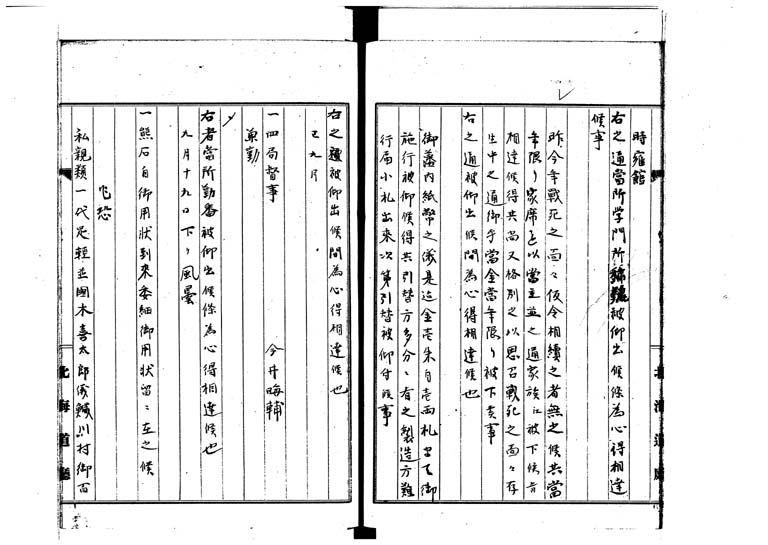 時雍館
右之通當所学門所被仰出候條為心得相達
候事
昨今年戦死之面々仮令相續之者無之候共當
年限リ家席を以當主並之通家族江被下候旨
相達候得共尚又格別之以思召戦死之面々存
生中之通御手當金當年限リ被下来事
右之通被仰出候間為心得相達候也
御藩内紙幣之儀是迄金壱朱自壱両札迄御
施行被仰候得共引替方多分ニ有之製造方難
行届小札出来次第引替被仰付候事
右之通被仰出候間為心得相達候也
已九月
一四局督事 今井晦輔
兼勤
〆
右者當所勤番被仰出候條為心得相達候也
九月十九日下リ風曇
一熊石自御用状到来委細御用状留ニ在之候
乍恐
私親類一代足輕並國木喜太郎儀川村御百
北海道廳
北海道廳